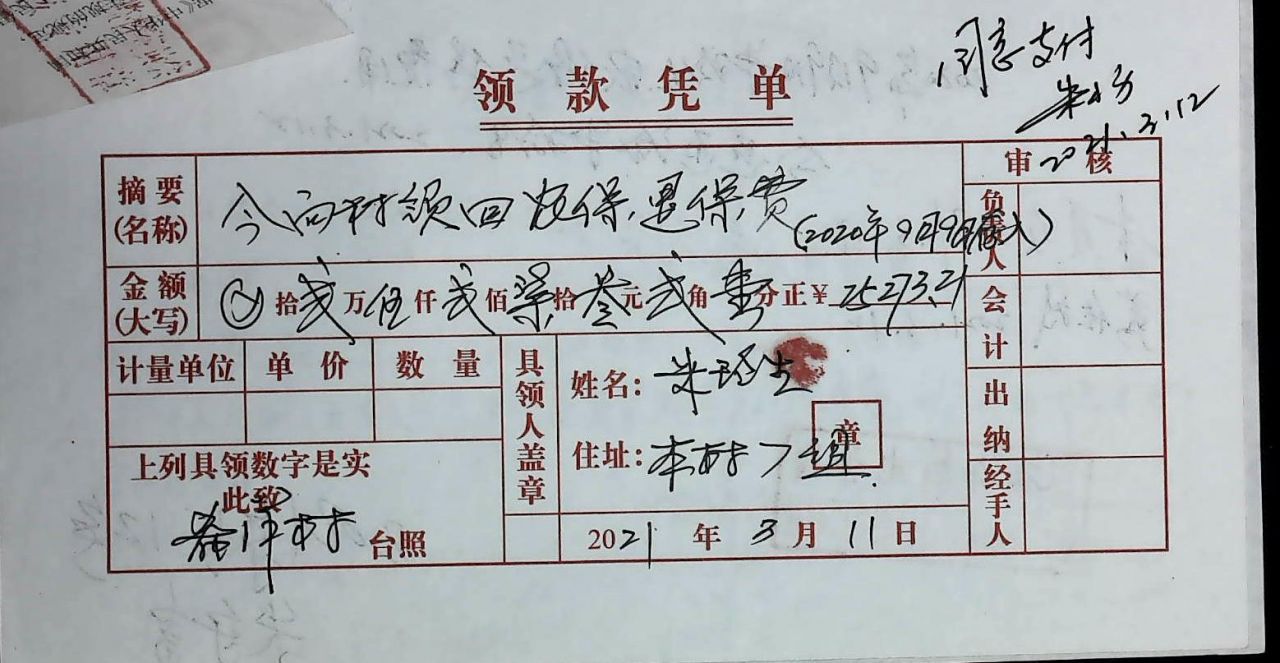 领款凭单
同意支付
2021.3.12
审核
摘要(名称) 今向村领回农保退保费(2020年9月9日存入)
负责人
金额(大写) 拾贰万伍仟贰佰柒拾叁元贰角壹分正¥25273.21
会计
计量单位 单价 数量 具领人盖章 姓名:
出纳
住址:本村7组 章
上列具领数字是实
此致
村 台照
经手人
2021年3月11日